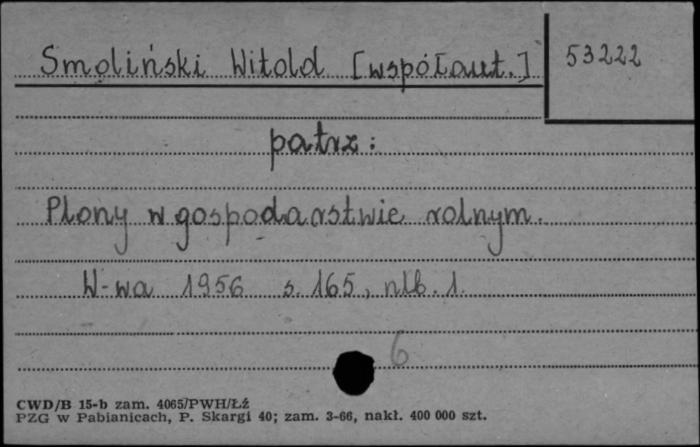 Smoliński Witold [współaut.]
53222
patrz:
Plony w gospodarstwie rolnym.
W-wa 1956 s. 165, nlb. 1.
6
CWD/B 15-b zam. 4065/PWH/Łź
PZG w Pabianicach, P. Skargi 40; zam. 3-66, nakł. 400 000 szt.